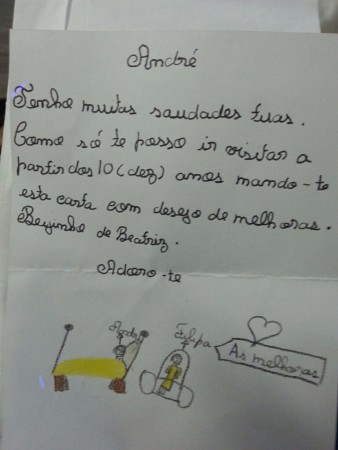 André
Tenho muitas saudades tuas.
Como só te posso ir visitar a
partir dos 10 (dez) anos mando-te
esta carta com desejo de melhoras.
Beijinho de Beatriz.
Adoro-te
André
Filipa
As melhoras